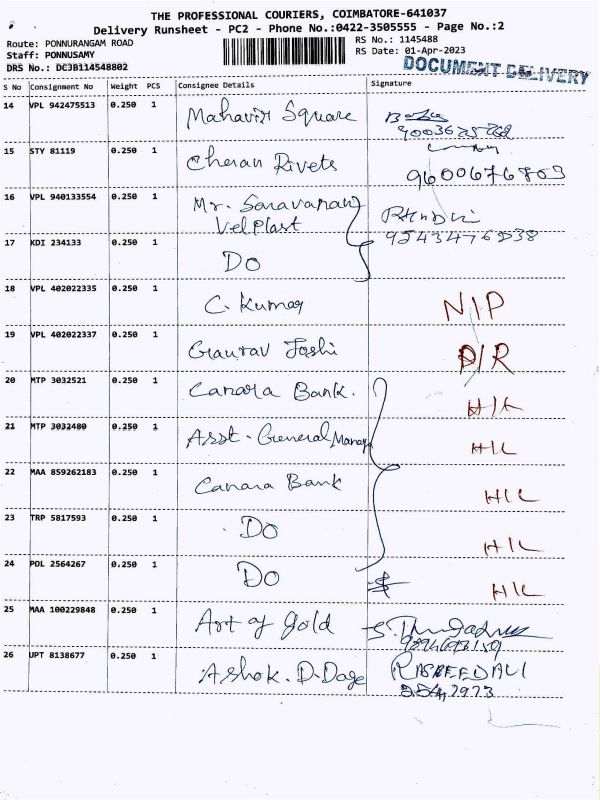 THE PROFESSIONAL COURIERS, COIMBATORE-641037
Delivery Runsheet - PC2 - Phone No.:0422-3505555 - Page No.:2
Route: PONNURANGAM ROAD
Staff: PONNUSAMY
DRS No.: DCJB114548802
RS No.: 1145488
RS Date: 01-Apr-2023
DOCUMENT DELIVERY
S No Consignment No Weight PCS Consignee Details Signature
14 VPL 942475513 0.250 1 Mahavir Square
15 STY 81119 0.250 1 Cheran Rivets 9600676803
16 VPL 940133554 0.250 1 Mr. Saravanan
Velplast
17 KDI 234133 0.250 1 DO
18 VPL 402022335 0.250 1 C. Kumar N/P
19 VPL 402022337 0.250 1 Gaurav Joshi D/R
20 MTP 3032521 0.250 1 Canara Bank. H/L
21 MTP 3032480 0.250 1 Asst. General Manager H/L
22 MAA 859262183 0.250 1 Canara Bank H/L
23 TRP 5817593 0.250 1 DO H/L
24 POL 2564267 0.250 1 DO H/L
25 MAA 100229848 0.250 1 Art of gold
26 UPT 8138677 0.250 1 Ashok. D. Dage RASHEED ALI